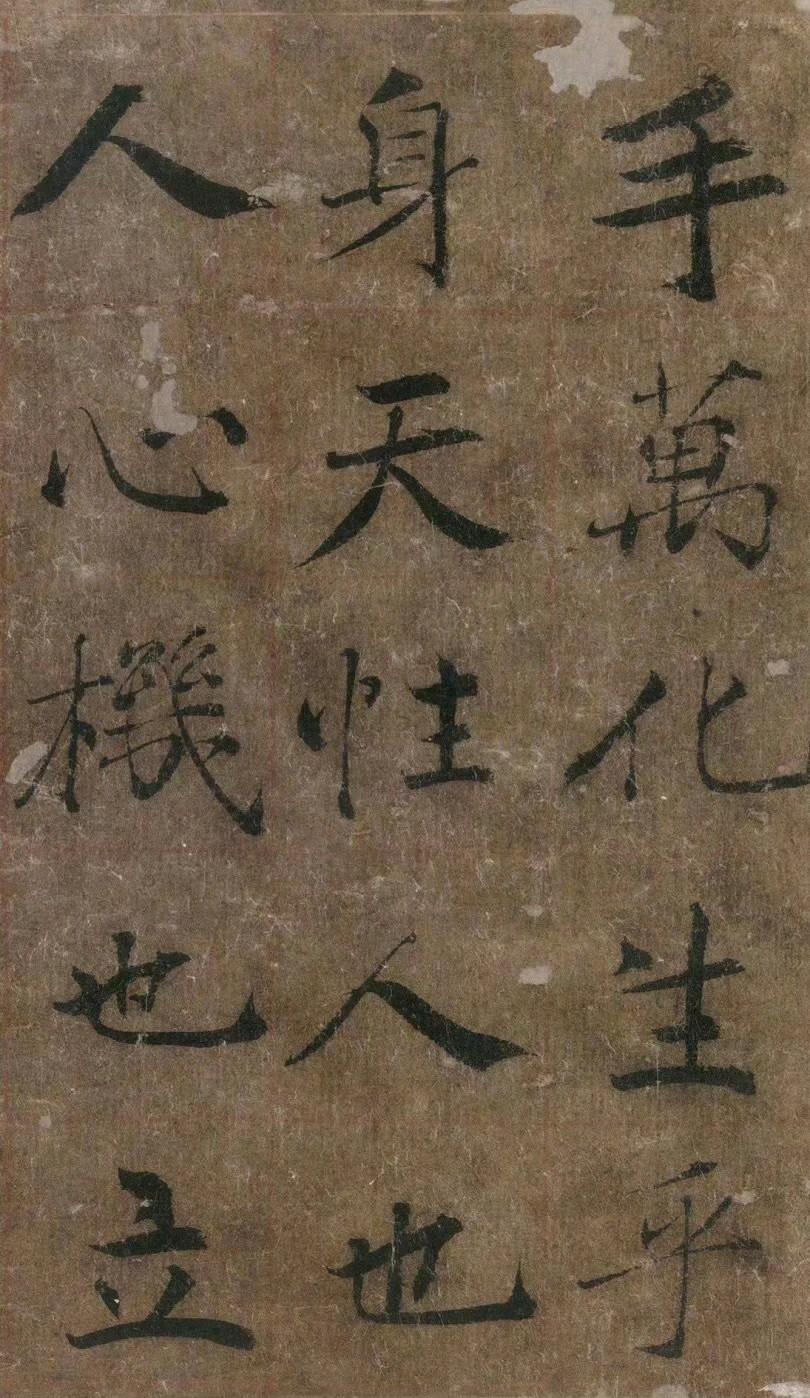 手萬化生乎
身天性人也
人心機也立